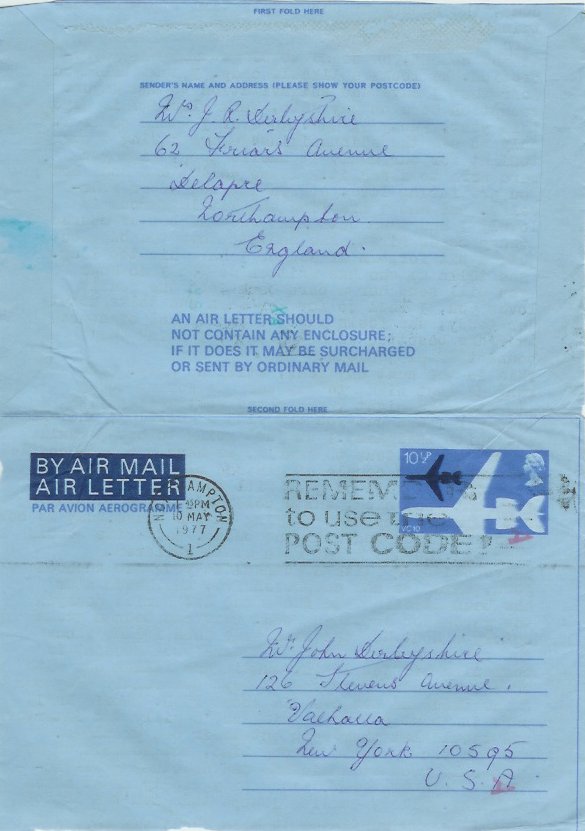 FIRST FOLD HERE
SENDER'S NAME AND ADDRESS (PLEASE SHOW YOUR POSTCODE)
Mrs J. R. Derbyshire
62 Friars Avenue
Delapre
Northampton
England.
AN AIR LETTER SHOULD
NOT CONTAIN ANY ENCLOSURE;
IF IT DOES IT MAY BE SURCHARGED
OR SENT BY ORDINARY MAIL
SECOND FOLD HERE
BY AIR MAIL
AIR LETTER
PAR AVION AEROGRAMME
NORTHAMPTON
PM
10 MAY
1977
1
10½P
VC10
REMEMBER
to use the
POST CODE!
Mr. John Derbyshire
126 Stevens Avenue.
Valhalla
New York 10595
U. S. A.